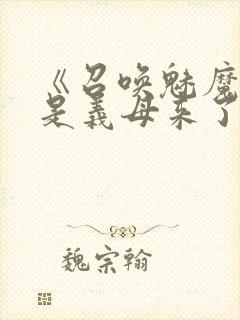 《召唤魅魔
是义母来了
魏宗翰